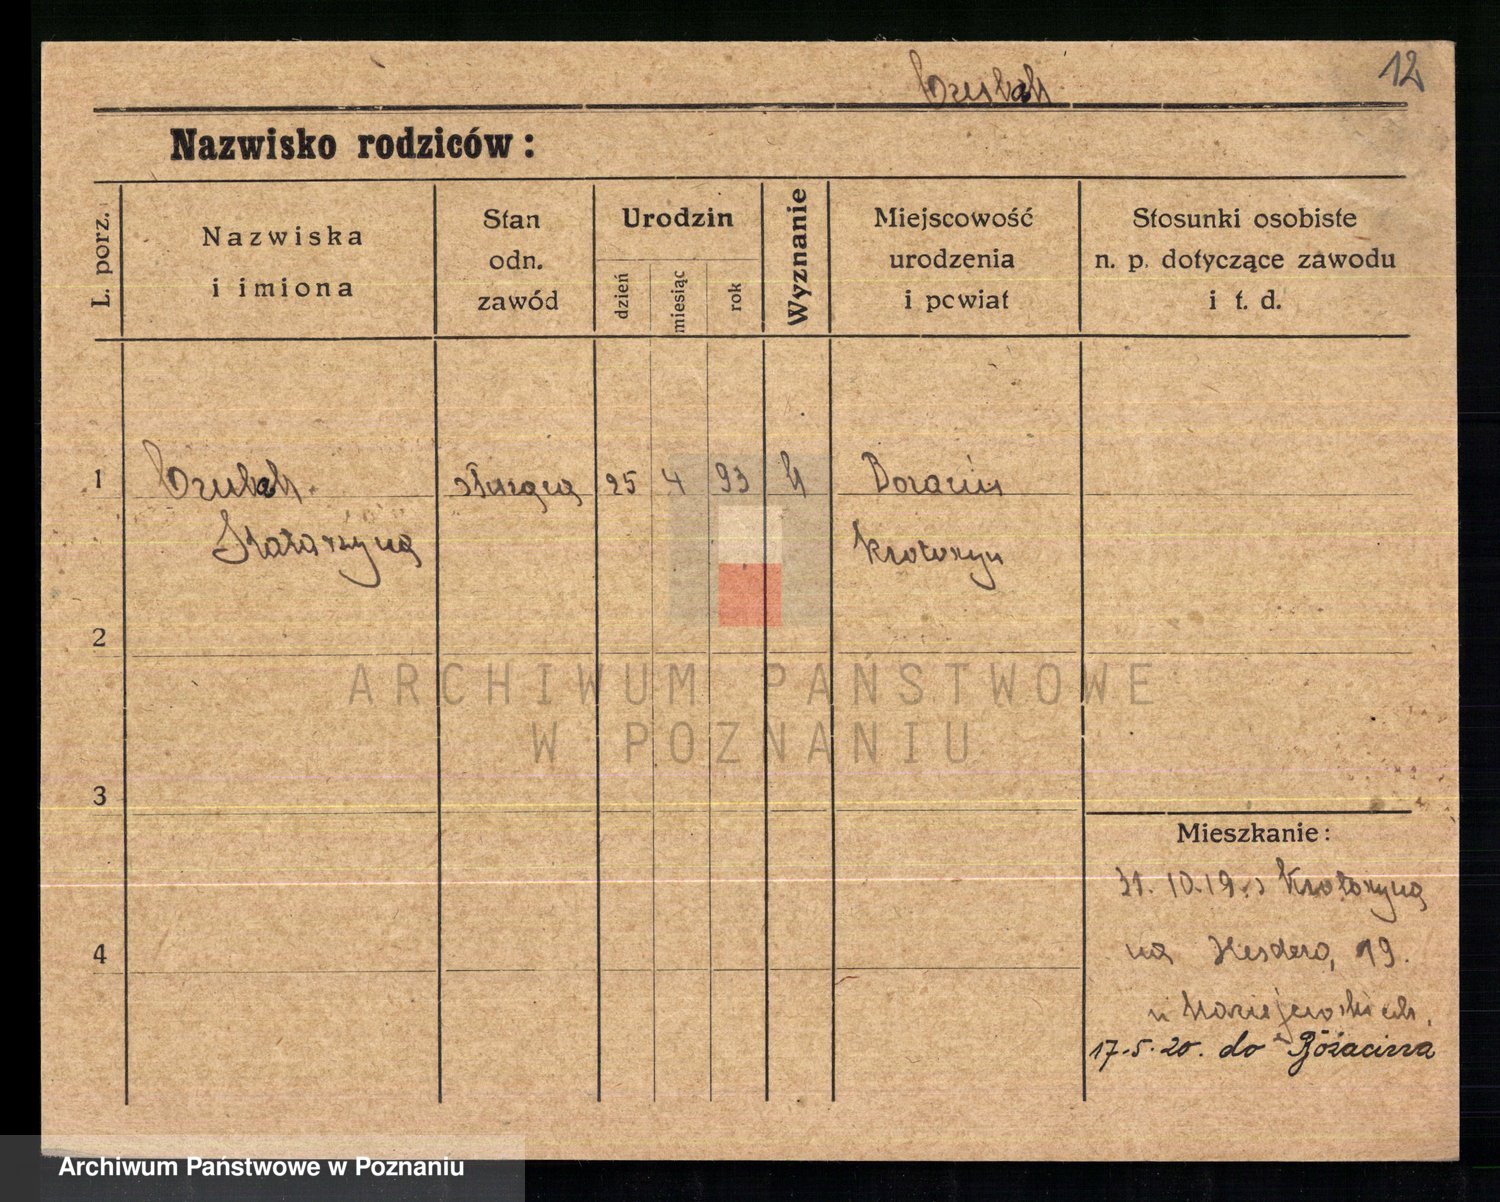 12
Nazwisko rodziców:
L. porz.
Nazwiska
i imiona
Stan
odn.
zawód
Urodzin
dzień
miesiąc
rok
Wyznanie
Miejscowość
urodzenia
i powiat
Stosunki osobiste
n. p. dotyczące zawodu
i t. d.
1
służąca 25 4 93 k
Katarzyna
Krotoszyn
2
3
4
Mieszkanie:
31. 10. 19. z Krotoszyna
na 19.
u Maciejewskich.
17.5.20. do Bożacina
ARCHIWUM PAŃSTWOWE
W POZNANIU
Archiwum Państwowe w Poznaniu